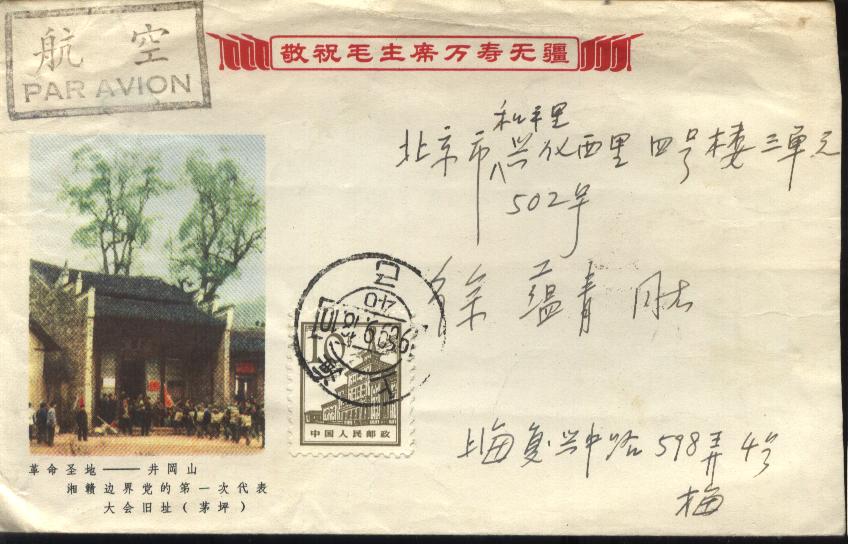 航空
PAR AVION
敬祝毛主席万寿无疆
和平里
北京市兴化西里四号楼三单元
502号
徐蕴青 同志
上海
40
10
中国人民邮政
上海复兴中路598弄4号
梅
革命圣地——井冈山
湘赣边界党的第一次代表
大会旧址(茅坪)